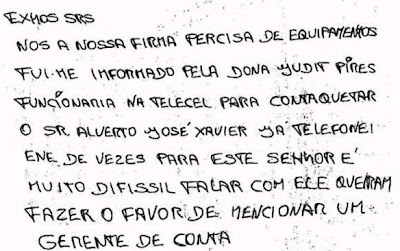 EXMOS SRS
NOS A NOSSA FIRMA PERCISA DE EQUIPAMENTOS
FUI-ME INFORMADO PELA DONA YUDIT PIRES
FUNÇIONARIA NA TELECEL PARA CONTAQUETAR
O SR. ALVERTO YOSÉ XAVIER YÁ TELEFONEI
ENE DE VEZES PARA ESTE SENHOR E'
MUITO DIFISSIL FALAR COM ELE QUEIRAM
FAZER O FAVOR DE MENCIONAR UM
GERENTE DE CONTA